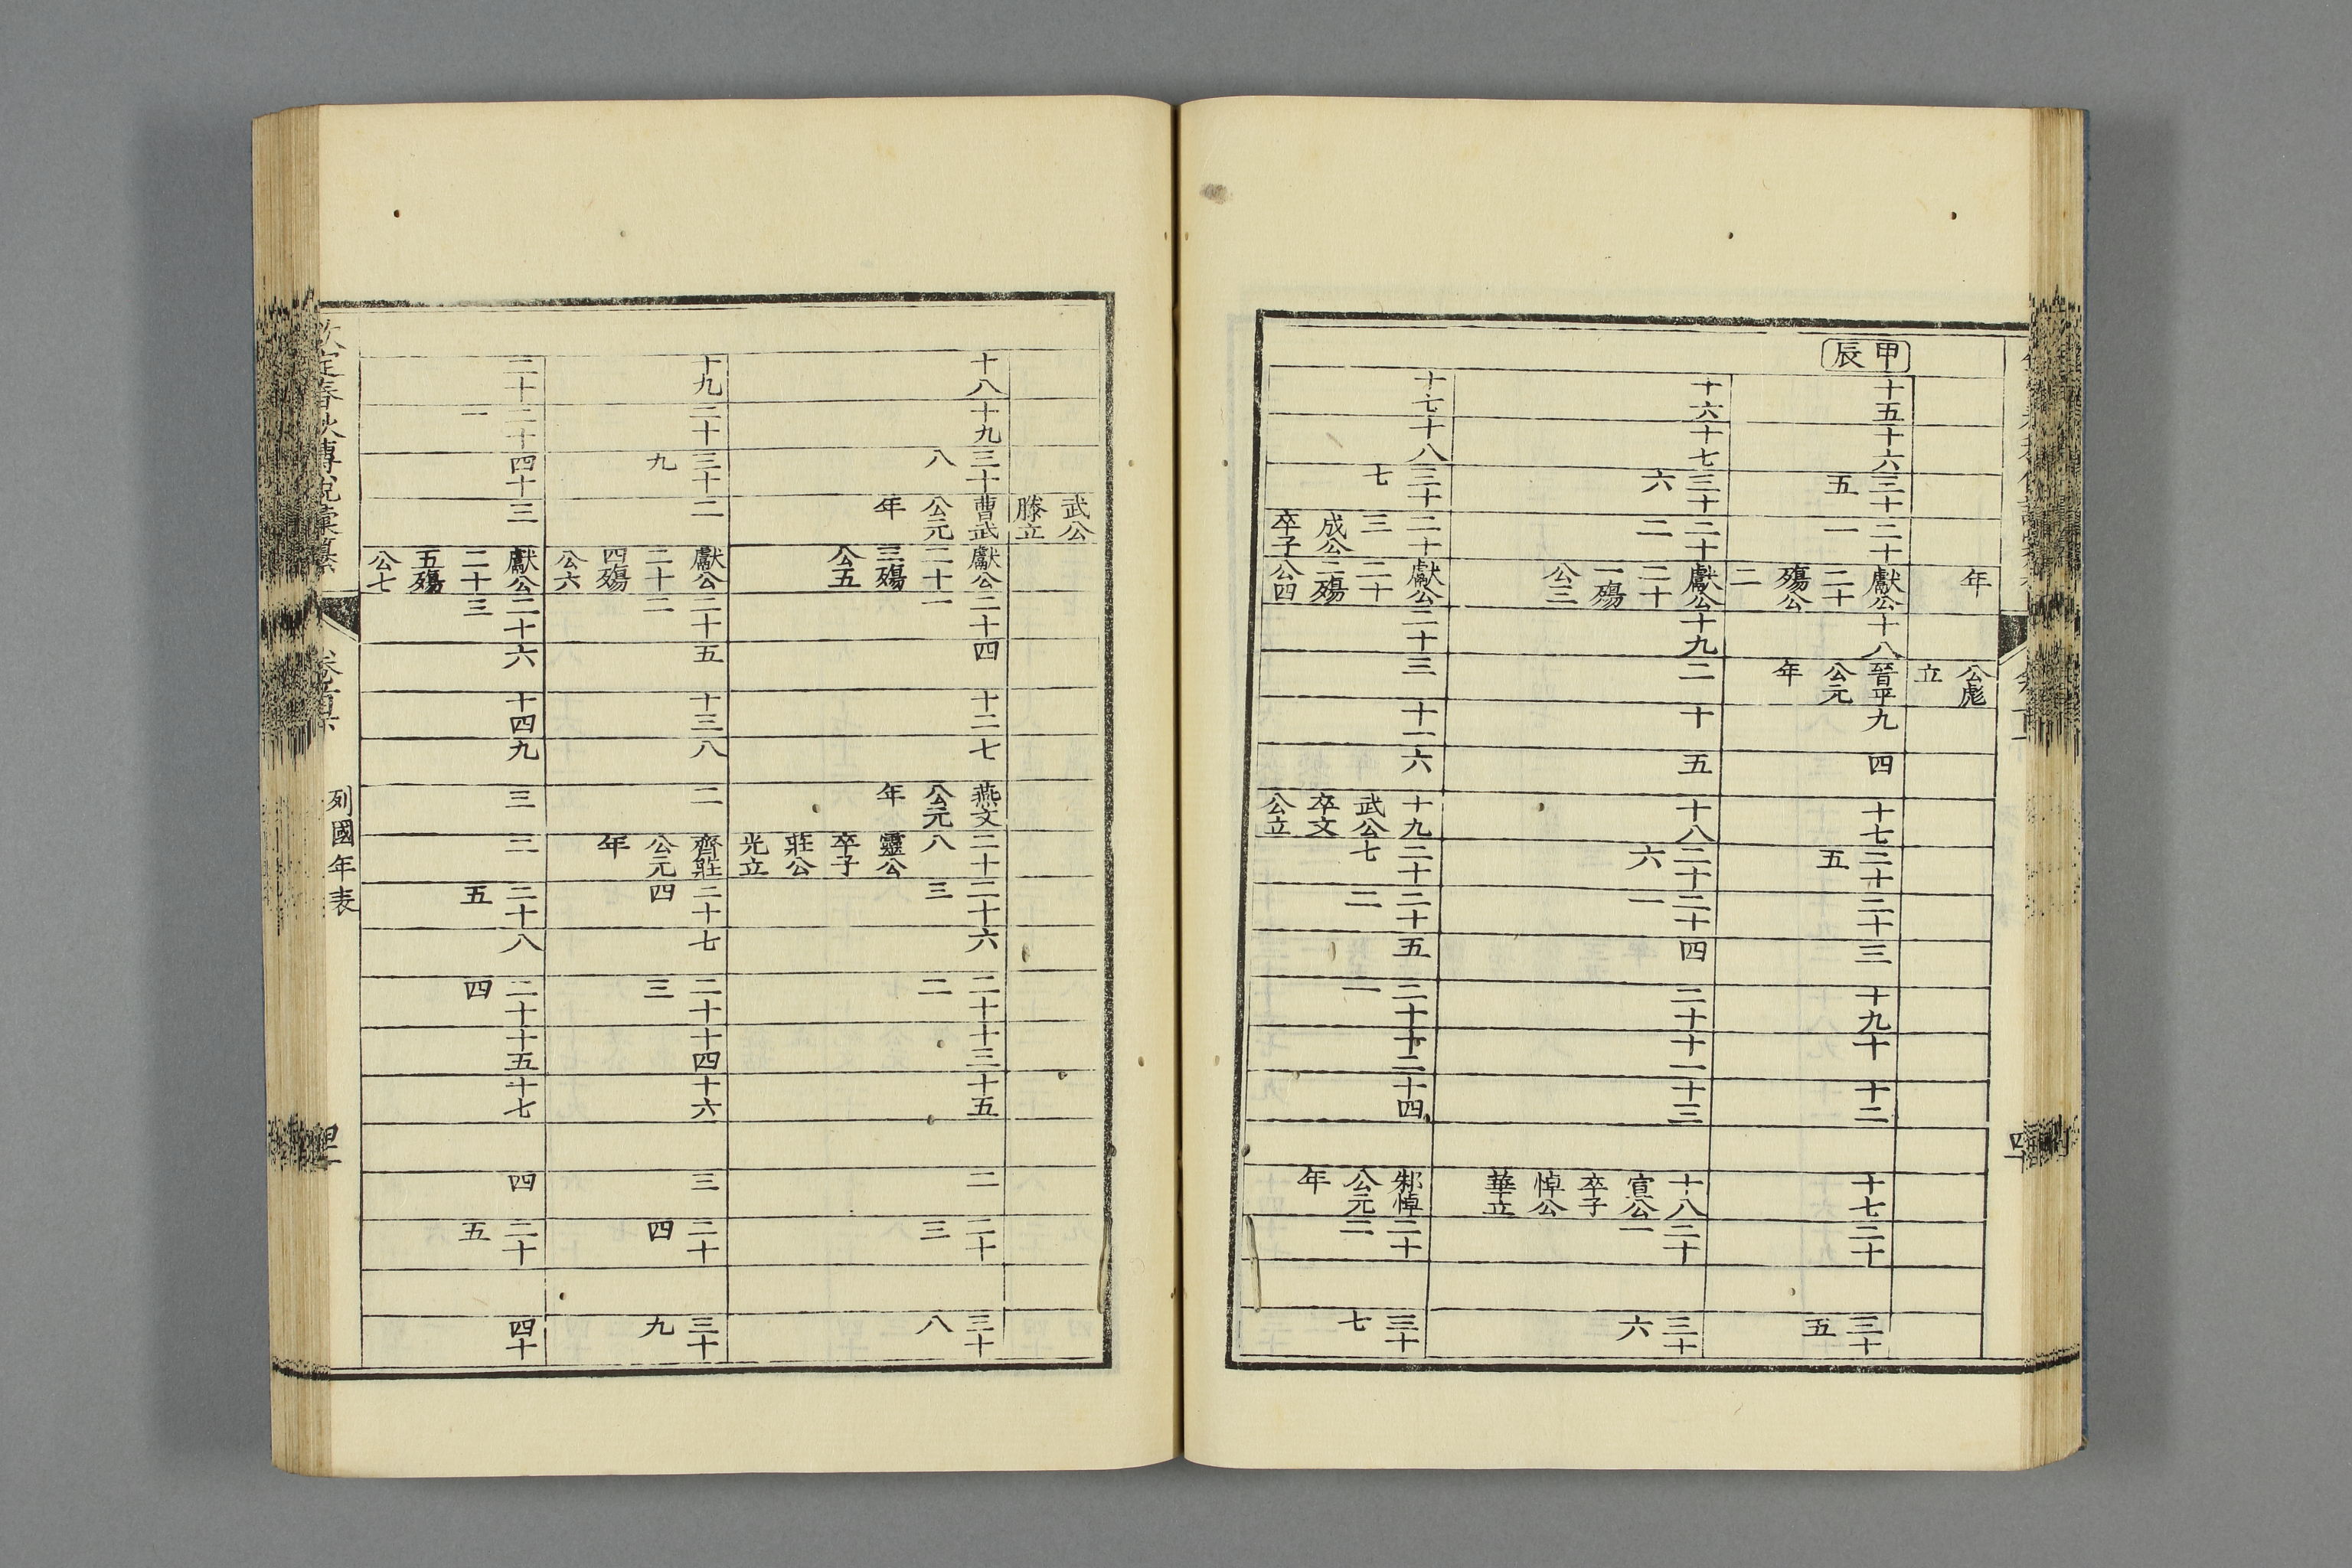 年
公彪立
甲辰
十五
十六
三十五
二十一
獻公二十殤公二
十八
晉平公元年
九
四
十七
二十五
二十
三
十九
十
十二
十七
二十
三十五
十六
十七
三十六
二十二
獻公二十一殤公三
十九
二
十
五
十八
二十六
二十一
四
二十
十一
十三
十八宣公卒子悼公華立
二十一
三十六
十七
十八
三十七
二十三成公卒子
獻公二十二殤公四
二十
三
十一
六
十九武公卒文公立
二十七
二十二
五
二十一
十二
十四
邾悼公元年
二十二
三十七
武公滕立
十八
十九
三十八
曹武公元年
獻公二十三殤公五
二十一
四
十二
七
燕文公元年
二十八靈公卒子莊公光立
二十三
六
二十二
十三
十五
二
二十三
三十八
十九
二十
三十九
二
獻公二十四殤公六
二十二
五
十三
八
二
齊莊公元年
二十四
七
二十三
十四
十六
三
二十四
三十九
二十
二十一
四十
三
獻公二十五殤公七
二十三
六
十四
九
三
二
二十五
八
二十四
十五
十七
四
二十五
四十
欽定春秋傳說彙纂
列國年表